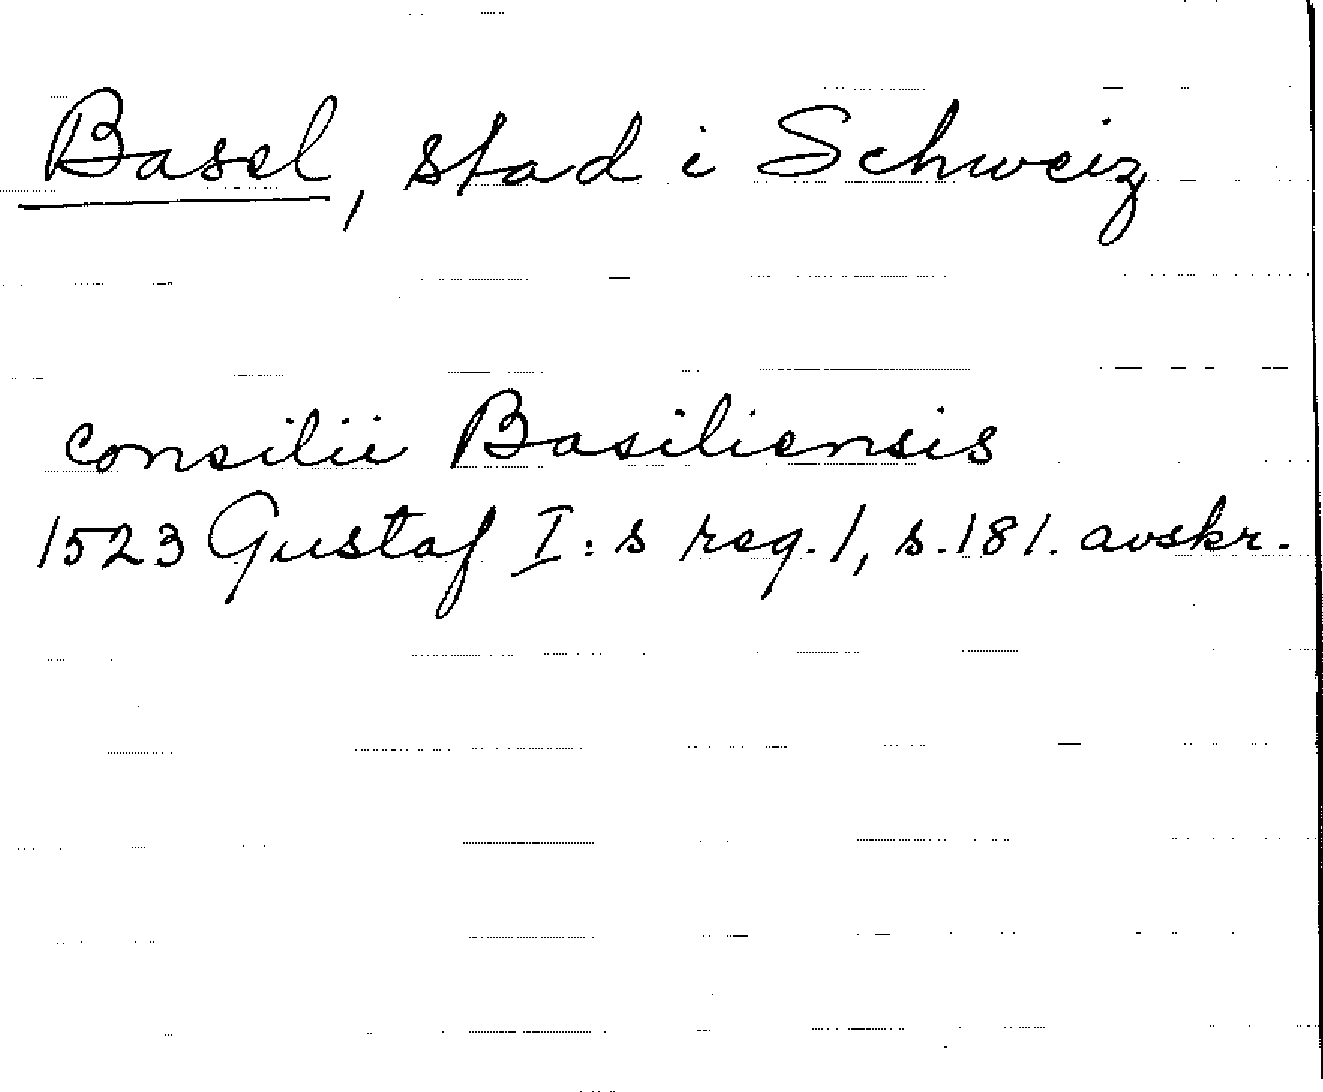 Basel, stad i Schweiz
consilii Basiliensis
1523 Gustaf I:s reg. 1, s. 181. avskr.